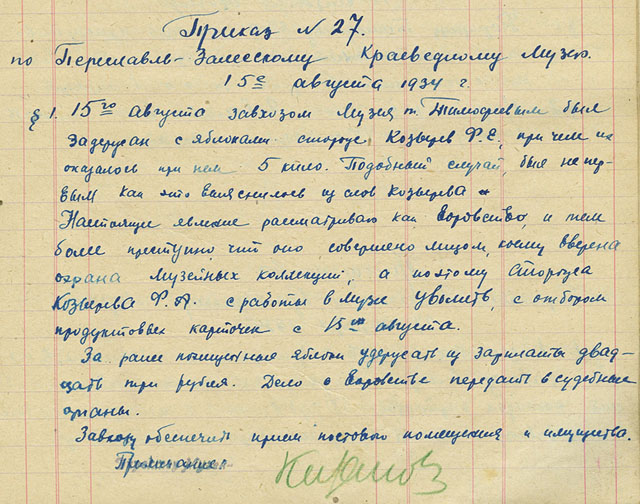 Приказ № 27.
по Переславль-Залесскому Краеведному Музею.
15е августа 1934 г.
§ 1. 15го августа завхозом Музея т. Тимофеевым был
задержан с яблоками сторож Козырев Ф.Е., при чем их
оказалось при нем 5 кило. Подобный случай, был не пер-
вым как это выяснилось из слов Козырева
Настоящие явление рассматриваю как воровство, и тем
более преступно, что оно совершено лицом, коему вверена
охрана музейных коллекций, а поэтому Сторожа
Козырева Ф.А. с работы в музее уволить, с отбором
продуктовых карточек с 15го августа.
За ранее похищенные яблоки удержать из зарплаты двад-
цать три рубля. Дело о воровстве передать в судебные
органы.
Завхозу обеспечить прием постового помещения и имущества.